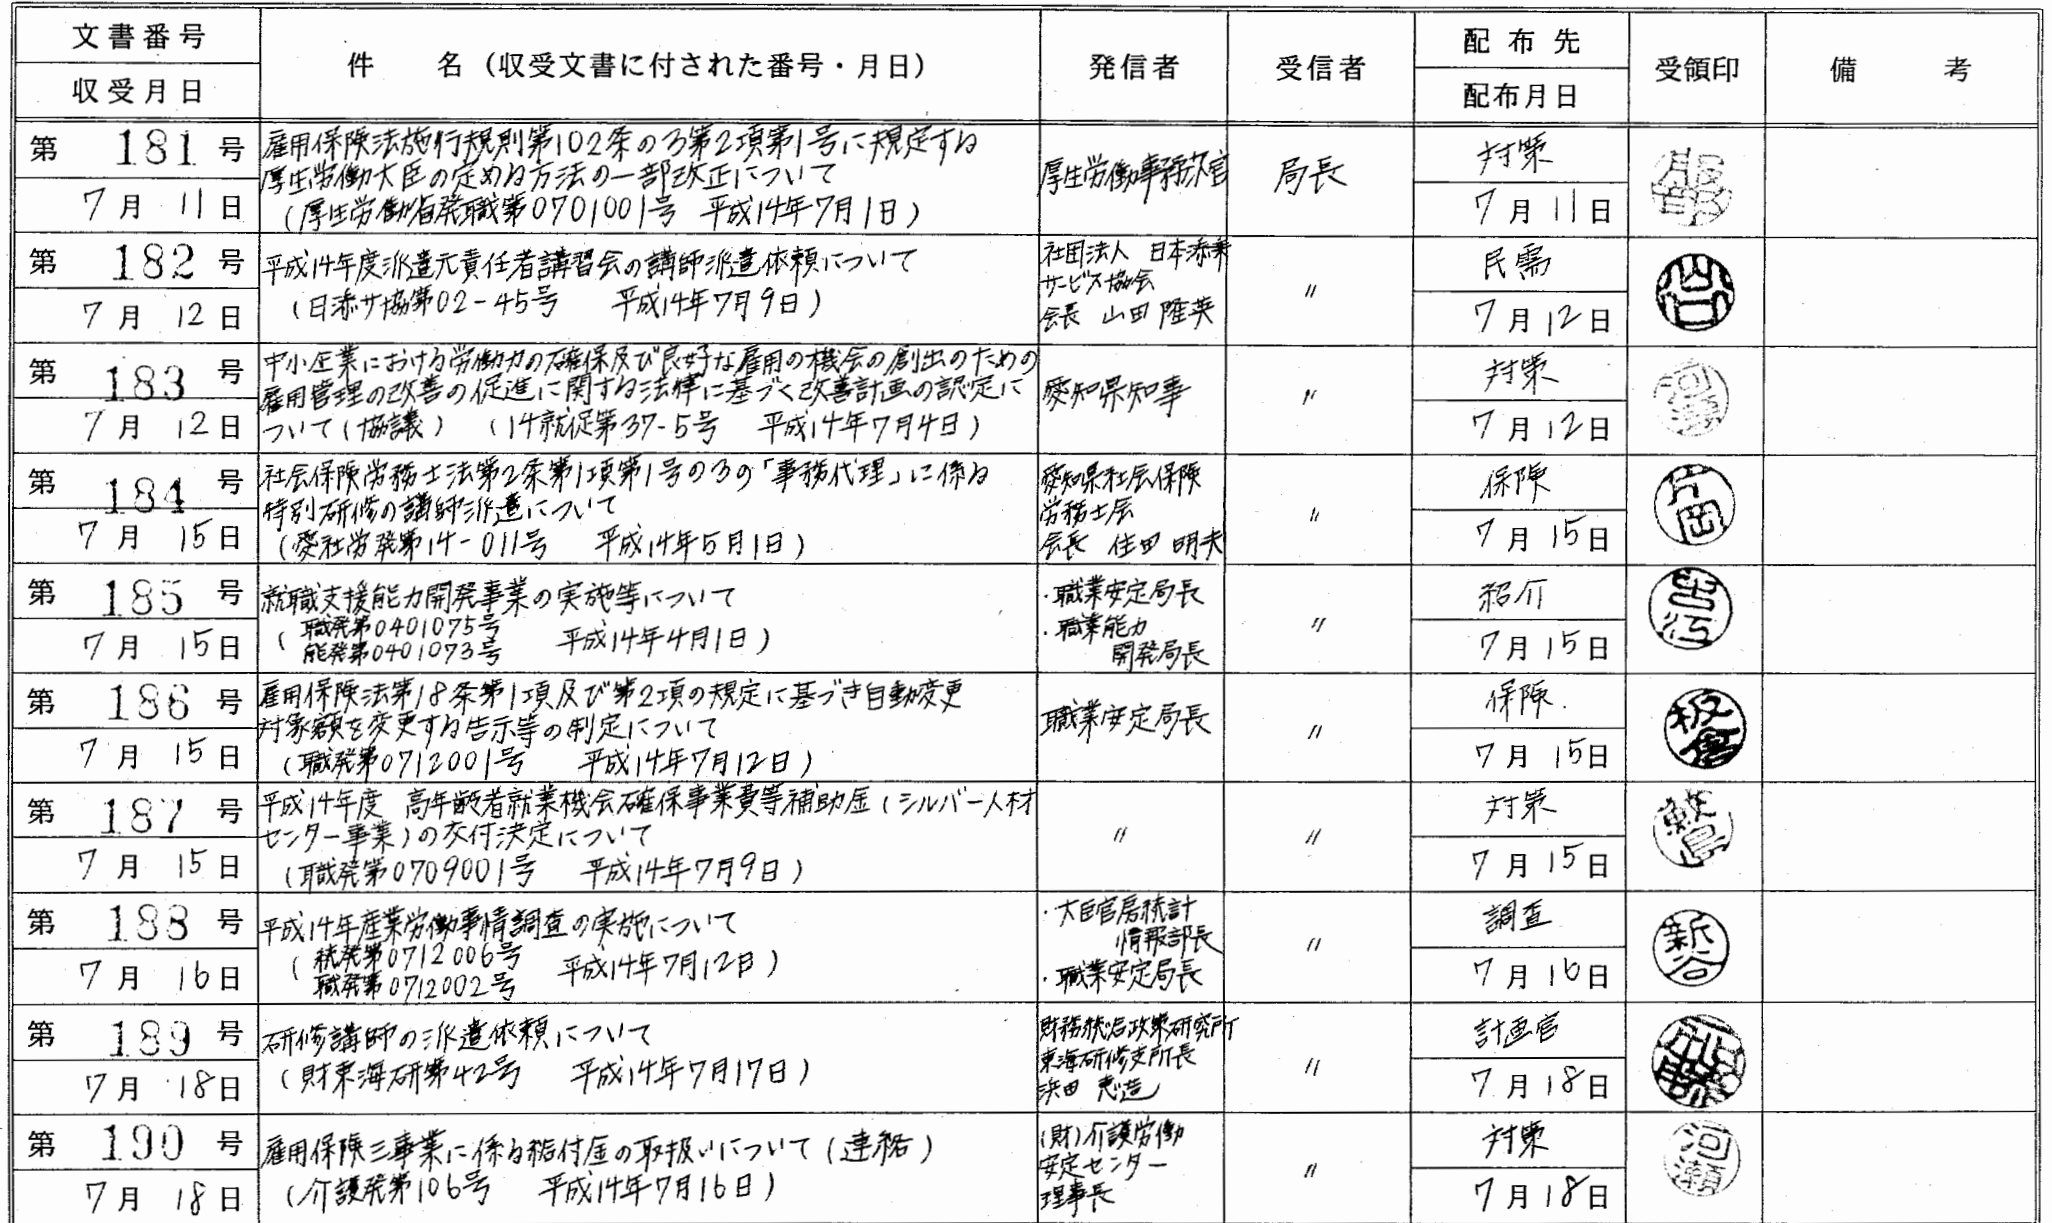 文書番号
収受月日
件　　名（収受文書に付された番号・月日）
発信者
受信者
配布先
配布月日
受領印
備　　考
第 181 号
7月 11日
雇用保険法施行規則第102条の3第2項第1号に規定する
厚生労働大臣の定める方法の一部改正について
（厚生労働省発職第0701001号　平成14年7月1日）
厚生労働事務次官
局長
対策
7月11日
服部
第 182 号
7月 12日
平成14年度派遣元責任者講習会の講師派遣依頼について
（日添サ協第02-45号　平成14年7月9日）
社団法人 日本添乗
サービス協会
会長 山田 隆英
〃
民需
7月12日
第 183 号
7月 12日
中小企業における労働力の確保及び良好な雇用の機会の創出のための
雇用管理の改善の促進に関する法律に基づく改善計画の認定に
ついて（協議）　（14就促第37-5号　平成14年7月4日）
愛知県知事
〃
対策
7月12日
河瀬
第 184 号
7月 15日
社会保険労務士法第2条第1項第1号の3の「事務代理」に係る
特別研修の講師派遣について
（愛社労発第14-011号　平成14年5月1日）
愛知県社会保険
労務士会
会長 住田 明夫
〃
保険
7月15日
片岡
第 185 号
7月 15日
就職支援能力開発事業の実施等について
（職発第0401075号
能発第0401073号　平成14年4月1日）
・職業安定局長
・職業能力
開発局長
〃
紹介
7月15日
第 186 号
7月 15日
雇用保険法第18条第1項及び第2項の規定に基づき自動変更
対象額を変更する告示等の制定について
（職発第0712001号　平成14年7月12日）
職業安定局長
〃
保険
7月15日
第 187 号
7月 15日
平成14年度 高年齢者就業機会確保事業費等補助金（シルバー人材
センター事業）の交付決定について
（職発第0709001号　平成14年7月9日）
〃
〃
対策
7月15日
鮫島
第 188 号
7月 16日
平成14年産業労働事情調査の実施について
（統発第0712006号
職発第0712002号　平成14年7月12日）
・大臣官房統計
情報部長
・職業安定局長
〃
調査
7月16日
新谷
第 189 号
7月 18日
研修講師の派遣依頼について
（財東海研第42号　平成14年7月17日）
財務総合政策研究所
東海研修支所長
浜田 恵造
〃
計画官
7月18日
第 190 号
7月 18日
雇用保険三事業に係る給付金の取扱いについて（連絡）
（介護発第106号　平成14年7月16日）
（財）介護労働
安定センター
理事長
〃
対策
7月18日
河瀬